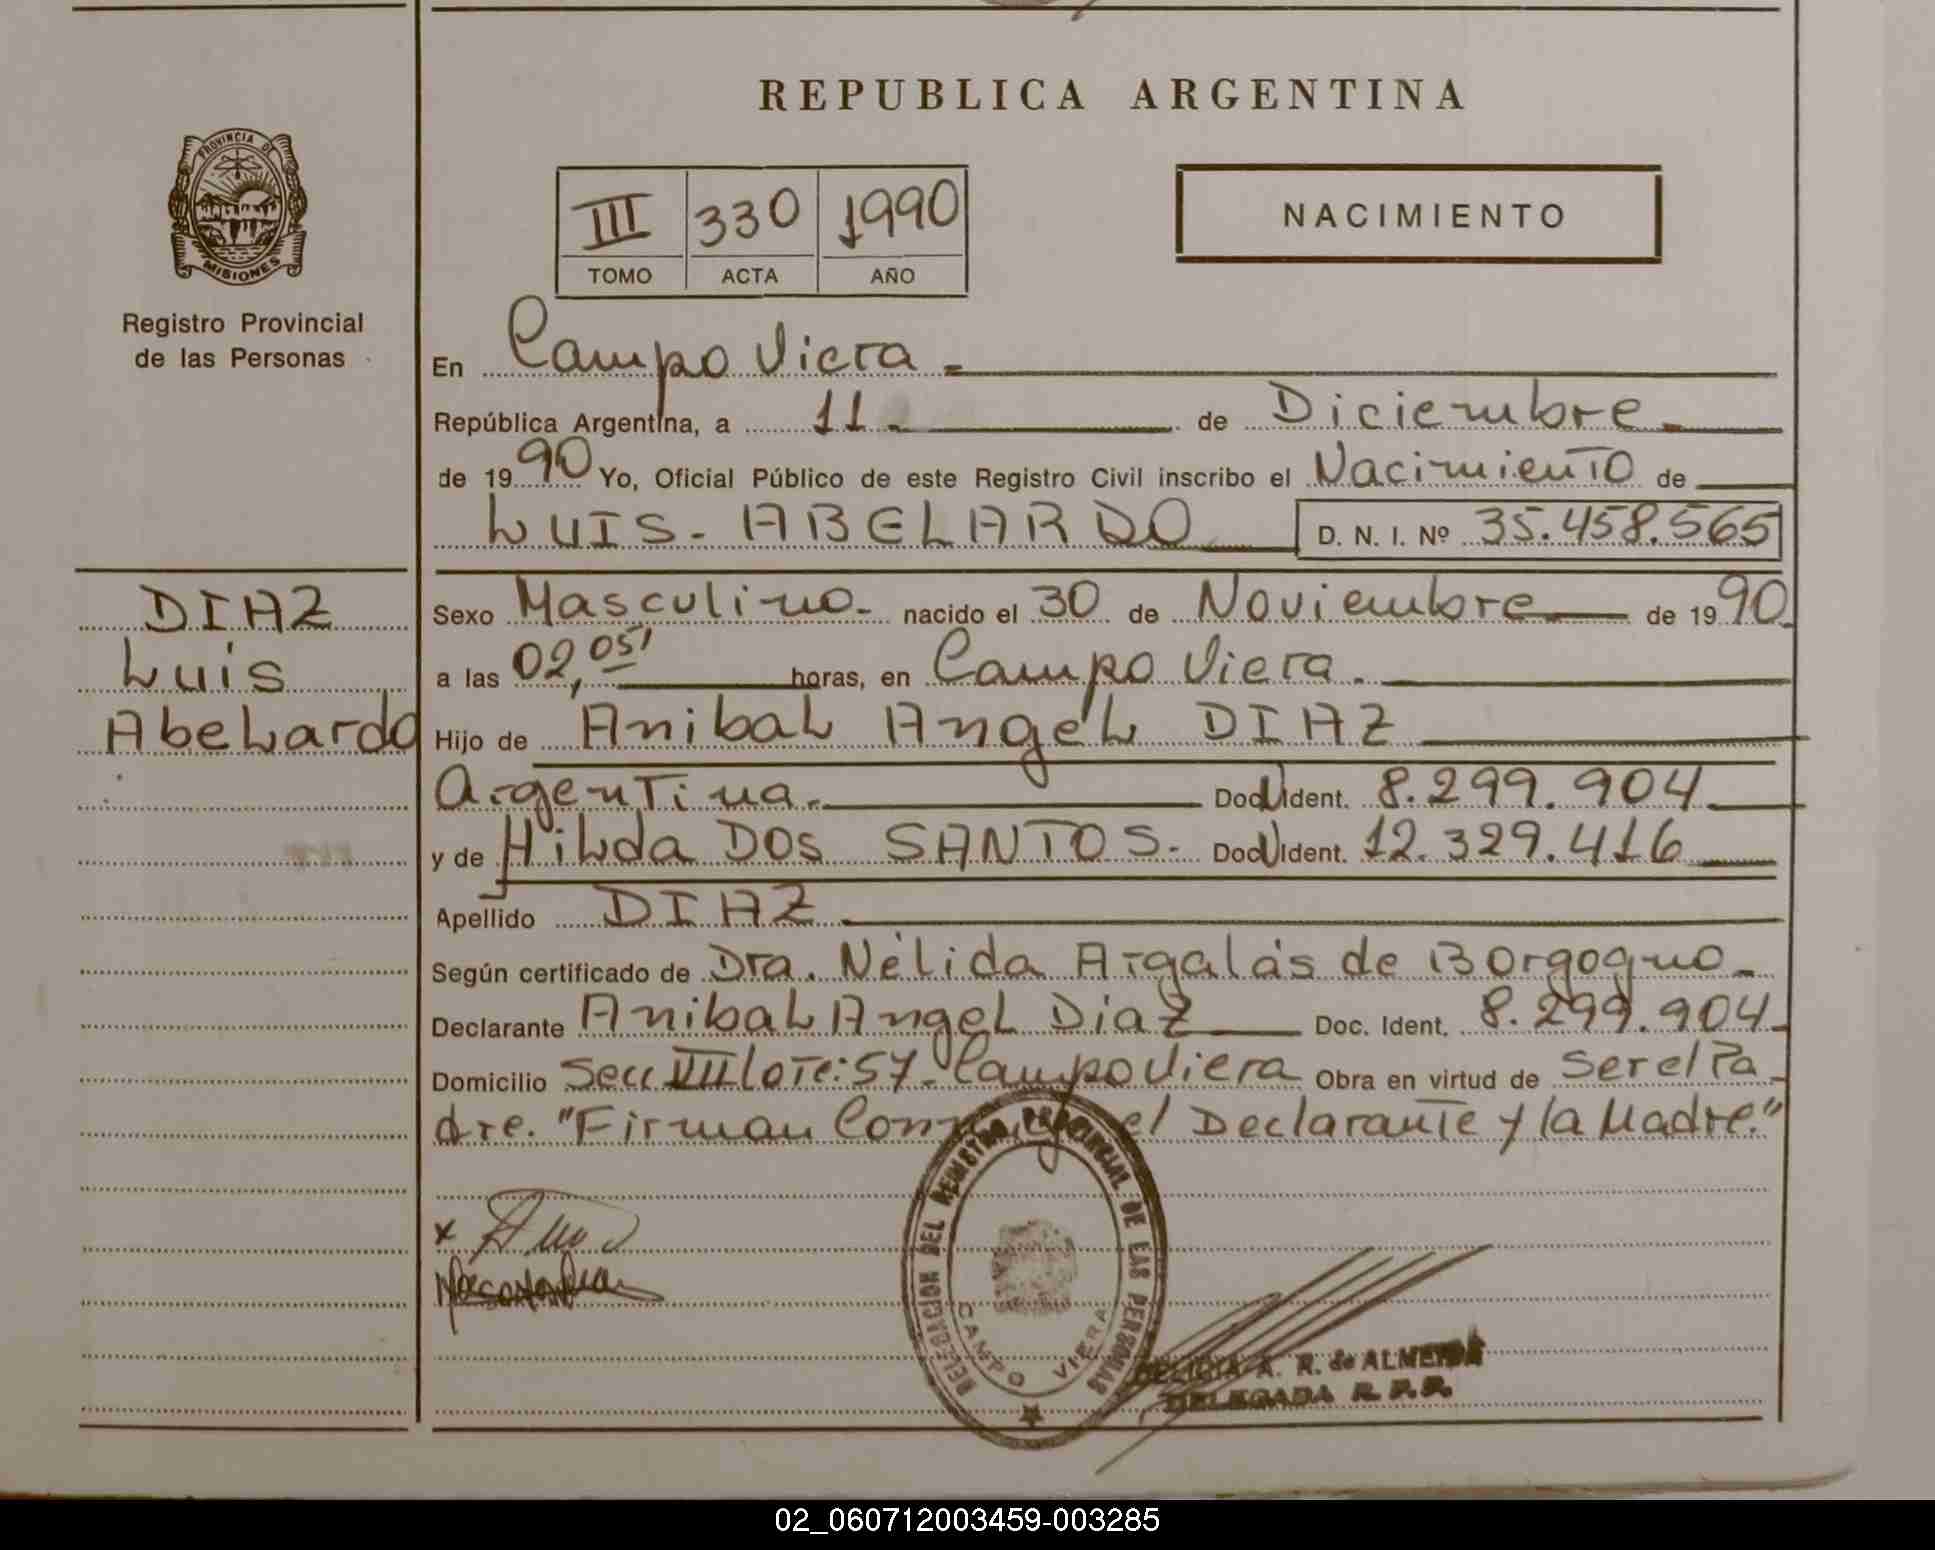 REPUBLICA ARGENTINA
PROVINCIA DE
MISIONES
Registro Provincial
de las Personas
III 330 1990
TOMO ACTA AÑO
NACIMIENTO
En Campo Viera.-
República Argentina, a 11.- de Diciembre.-
de 1990 Yo, Oficial Público de este Registro Civil inscribo el Nacimiento de
LUIS- ABELARDO D. N. I. Nº 35.458.565
DIAZ
Luis
Abelardo
Sexo Masculino.- nacido el 30 de Noviembre de 1990.
a las 02,05' horas, en Campo Viera.-
Hijo de Anibal Angel DIAZ
Argentina.- Doc. Ident. 8.299.904.-
y de Hilda DOS SANTOS.- Doc. Ident. 12.329.416
Apellido DIAZ.-
Según certificado de Dra. Nélida Argalás de Borgogno.-
Declarante Anibal Angel Diaz Doc. Ident. 8.299.904.-
Domicilio Secc VIII Lote: 57- Campo Viera Obra en virtud de ser el Pa-
dre. "Firman el Declarante y la Madre."
x
DELEGACION DEL REGISTRO PROVINCIAL DE LAS PERSONAS
CAMPO VIERA
A. R. de ALMEIDA
DELEGADA R. P. P.
02_060712003459-003285